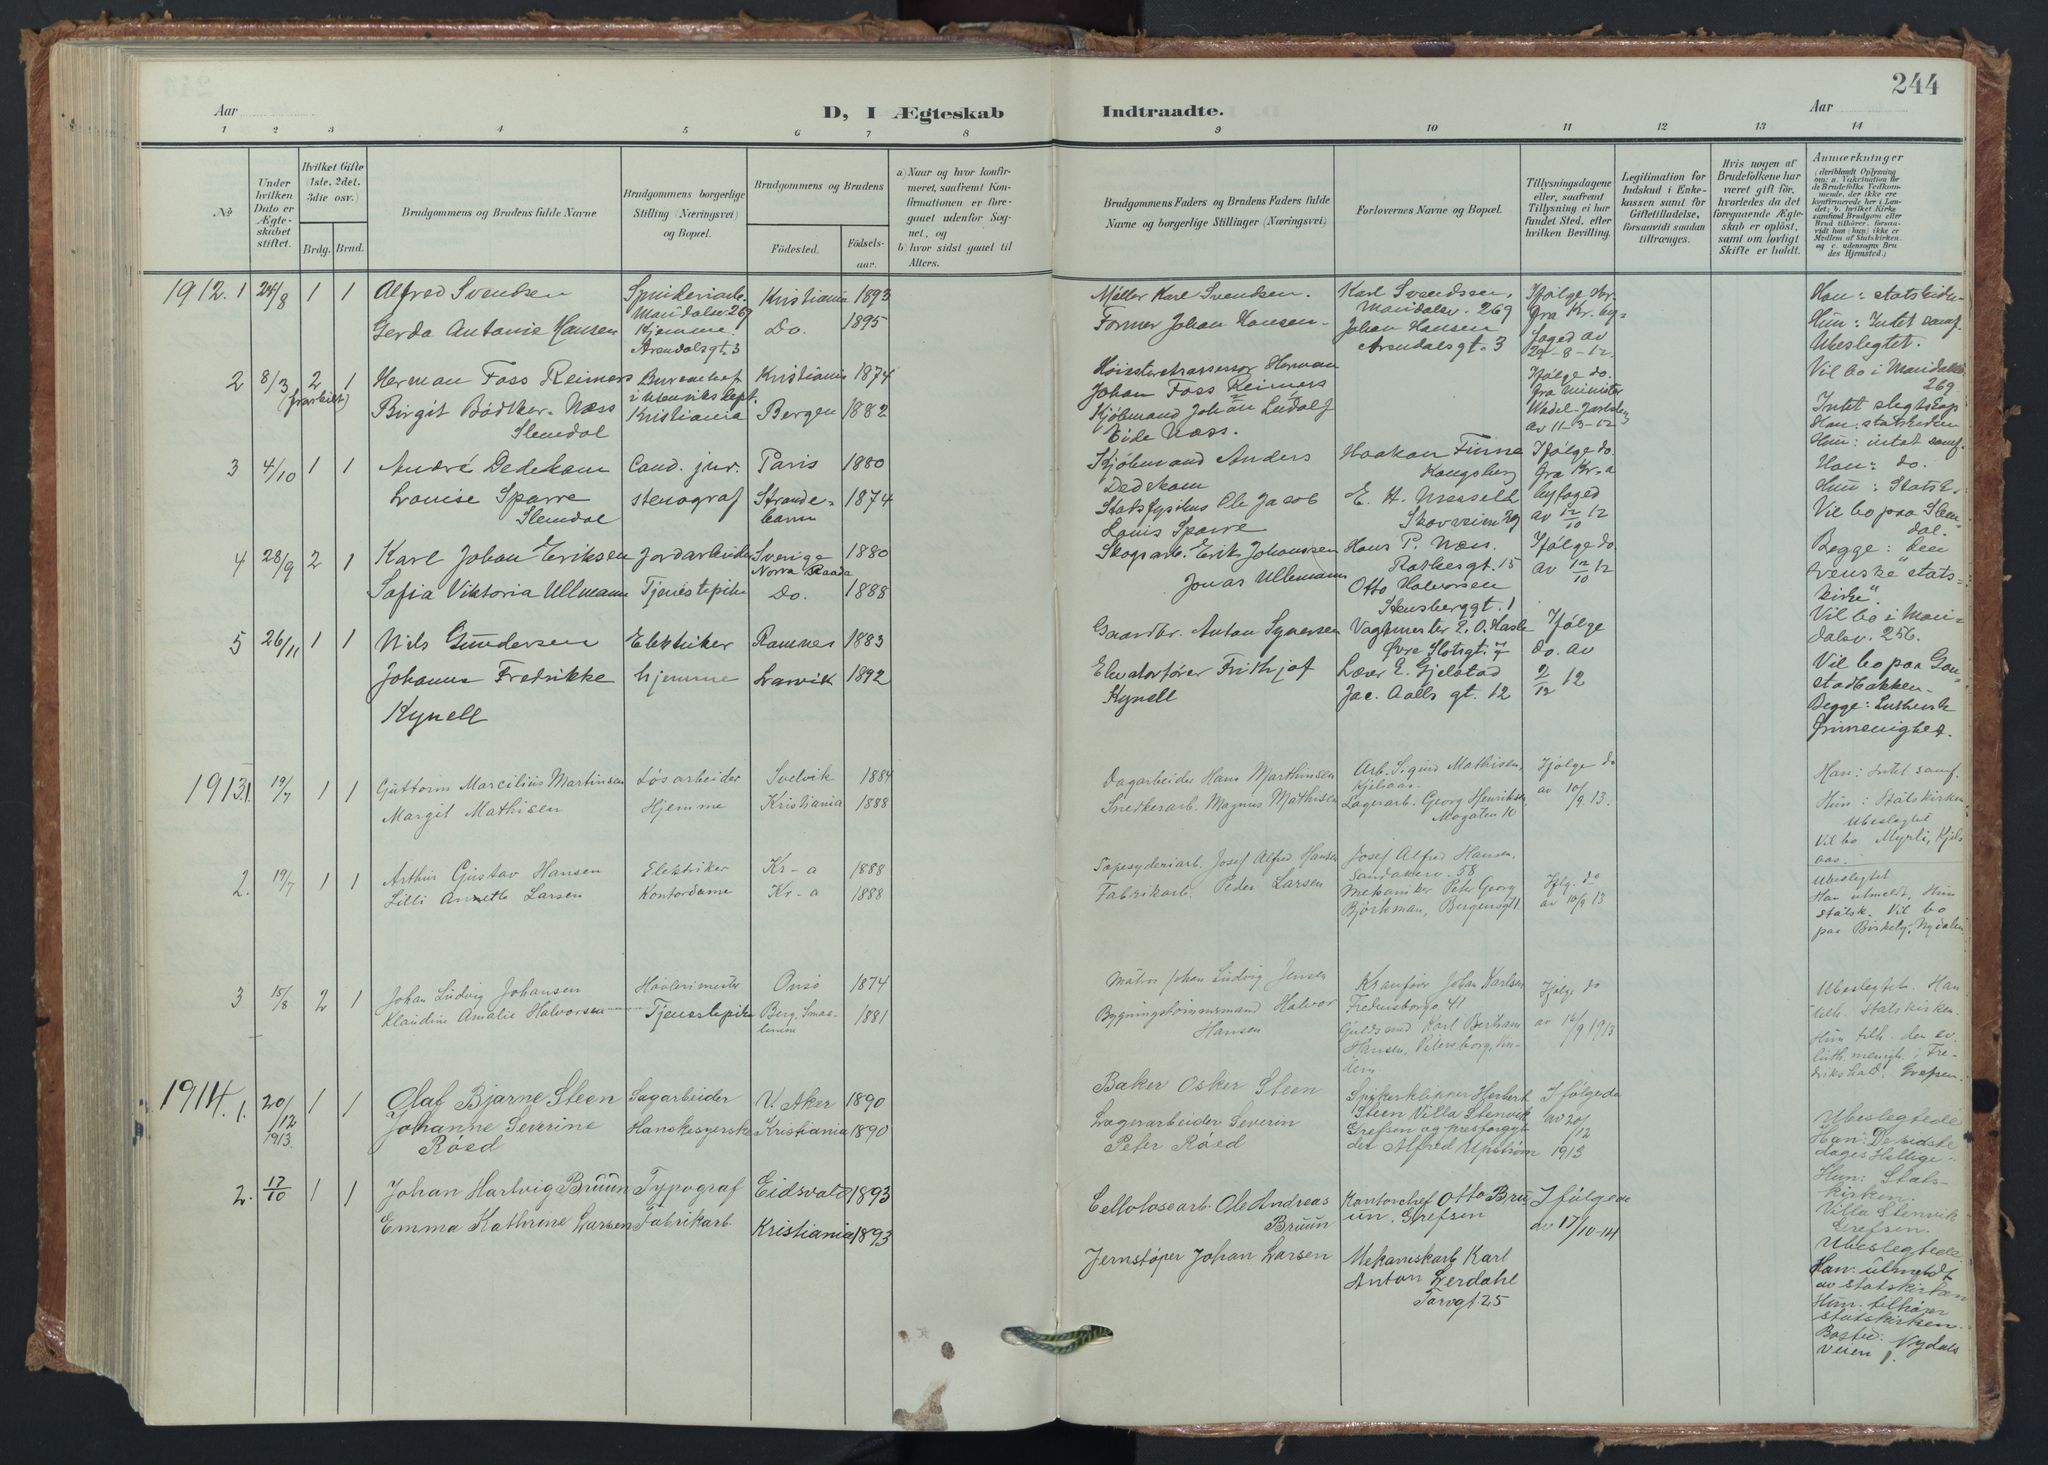 244
Aar
D, I Ægteskab
Indtraadte.
Aar
1 2 3 4 5 6 7 8 9 10 11 12 13 14
No
Under hvilken Dato er Ægteskabet stiftet.
Hvilket Gifte (1ste, 2det, 3die osv.)
Brdg. Brud.
Brudgommens og Brudens fulde Navne
Brudgommens borgerlige Stilling (Næringsvei) og Bopæl.
Brudgommens og Brudens
Fødested. Fødselsaar.
a) Naar og hvor konfirmeret, saafremt Konfirmationen er foregaaet udenfor Sognet, og
b) hvor sidst gaaet til Alters.
Brudgommens Faders og Brudens Faders fulde Navne og borgerlige Stillinger (Næringsvei)
Forlovernes Navne og Bopæl.
Tillysningsdagene eller, saafremt Tillysning ei har fundet Sted, efter hvilken Bevilling.
Legitimation for Indskud i Enkekassen samt for Giftetilladelse, forsaavidt saadan tiltrænges.
Hvis nogen af Brudefolkene har været gift før, hvorledes da det foregaaende Ægteskab er opløst, samt om lovligt Skifte er holdt.
Anmærkninger
1912. 1 24/8 1 1 Alfred Svendsen
Mandalsv. 269
Kristiania 1893
Møller Karl Svendsen.
Karl Svendssen, Maridalsv. 269
Gerda Antonie Hansen
Hjemme Arendalsgt. 3
Do. 1895
Former Johan Hansen
Johan Hansen Arendalsgt. 3
Han: statskirken
Hun: Intet samf.
Ubeslegtet.
Vil bo i Maridalsv. 269
2 8/3 2 (fraskilt) 1 Herman Foss Reimers
Kristiania 1874
Høiesteretsassessor Herman Johan Foss Reimers
Ifølge do. fra minister Wedel-Jarlsberg av 11-3-12
Birgit Bödtker-Næss
Slemdal
Kristiania
Bergen 1882
Kjøbmand Johan Ludolf Eide Næss.
Intet slegtskap
Han: statskirken
Hun: intet samf.
3 4/10 1 1 André Dedekam
Cand. jur.
Paris 1880
Kjøbmand Anders Dedekam
Haakon Finne Kongsberg
Ifølge do. fra Kr.a byfoged av 12/10 12
Louise Sparre
Slemdal
stenograf
Strandebarm 1874
Statsfysikus Ole Jacob Louis Sparre
Han: do.
Hun: Statsk.
Vil bo paa Slemdal.
4 28/9 2 1 Karl Johan Eriksen
Jordarbeider
Sverige Norra Raada 1880
Skogsarb. Erik Johanssen
Hans P. Næss.
Ifølge do. av 12/10 12
Sofia Viktoria Ullmann
Tjenestepike
Do. 1888
Jonas Ullemann
Otto Halvorsen Stensberggt. 1
Begge: den svenske statskirke.
Vil bo i Maridalsv. 256.
5 26/11 1 1 Nils Gundersen
Elektriker
Ramnes 1883
Gaardbr. Anton Syversen
Vagtmester P. O. Hasle Øvre Slotsgt. 7
Ifølge do. av 2/12 12
Johanne Fredrikke Kynell
hjemme
Larvik 1892
Elevatorfører Frithjof Kynell
Lærer E. Gjelstad Jac. Aalls gt. 12
Vil bo paa Gaustadbakken.
Begge: Luthersk frimenighet.
1913. 1. 19/7 1 1 Guttorm Marcilius Martinsen
Løsarbeider
Svelvik 1884
Dagarbeider Hans Marthinsen
Arb. Sigurd Mathisen, Kjelsaas.
Ifølge do av 10/9 13.
Margit Mathisen
Hjemme
Kristiania 1888
Snedkerarb. Magnus Mathisen
Lagerarb. Georg Henriksen Mogaten 10
Han: Intet samf.
Hun: Statskirken
Ubeslegtet
Vil bo Myrli, Kjelsaas.
2. 19/7 1 1 Arthur Gustav Hansen
Elektriker
Kr-a 1888
Sæpesyderiarb. Josef Alfred Hansen
Josef Alfred Hansen, Sandakerv. 58
Ifølg. do av 10/9 13
Lilli Annette Larsen
Kontordame
Kr-a 1888
Fabrikarb. Peder Larsen
Mekaniker Peter Georg Björkman, Bergensgt 1
Ubeslegtet
Han utmeldt, Hun statsk. Vil bo paa Birkely, Nydalen
3 15/8 2 1 Johan Ludvig Johansen
Høvlerimester
Onsø 1874
Matros Johan Ludvig Jensen
Kranfører Johan Karlsen Fredensborgv. 41
Ifølge do av 16/9 1913
Klaudine Amalie Halvorsen
Tjenestepike
Berg, Smaalenene 1881
Bygningstømmermand Halvor Hansen
Guldsmed Karl Bertram Hansen, Petersborg, Lindern.
Ubeslegtet. Han tilh. Statskirken.
Hun tilh. den ev. luth. menigh. i Fredrikshald. Grefsen.
1914. 1. 20/12 1913 1 1 Olaf Bjarne Steen
Sagarbeider
V. Aker 1890
Baker Osker Steen
Spikerklipper Herbert Steen Villa Stenvik Grefsen og Messingyder Alfred Upstrøm
Ifølge do av 20/12 1913
Johanne Severine Røed
Hanskesyerske
Kristiania 1890
Lagerarbeider Severin Peter Røed
Ubeslegtede
Han: De sidste dages Hellige.
Hun: Statskirken.
Villa Stenvik Grefsen.
2. 17/10 1 1 Johan Hartvig Bruun
Typograf
Eidsvold 1893
Cellolosearb. Ole Andreas Bruun
Kontorchef Otto Bruun. Grefsen
Ifølge do av 17/10-14
Emma Kathrine Larsen
Fabrikarb.
Kristiania 1893
Jernstøper Johan Larsen
Mekaniskarb Karl Anton Lerdahl Torvgt 25
Ubeslegtede
Han: utmeldt av statskirken
Hun: tilhører statskirken.
Bosted: Nydalsveien 1.